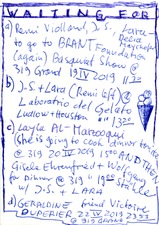 WAITING FOR
a) Remi Violland, J.S.
to go to BRANT Foundation
(again) Basquiat Show @
319 Grand 19 IV 2019
b) J.S + LARA (Remi left) @
Laboratorio del Gelato
Ludlow + Houston 1320
c) Layla AL-Marzooqui
(she is going to cook) dinner
@ 319 20 IV 2019 1500 AND THEN
Gisela Ehrenfried + Wolf
for Dinner @ 319
w/ J.S. + LARA
d) GERALDINE friend Victoire
DUPERIER 22 IV 2019 2353
@ 319 GRAND